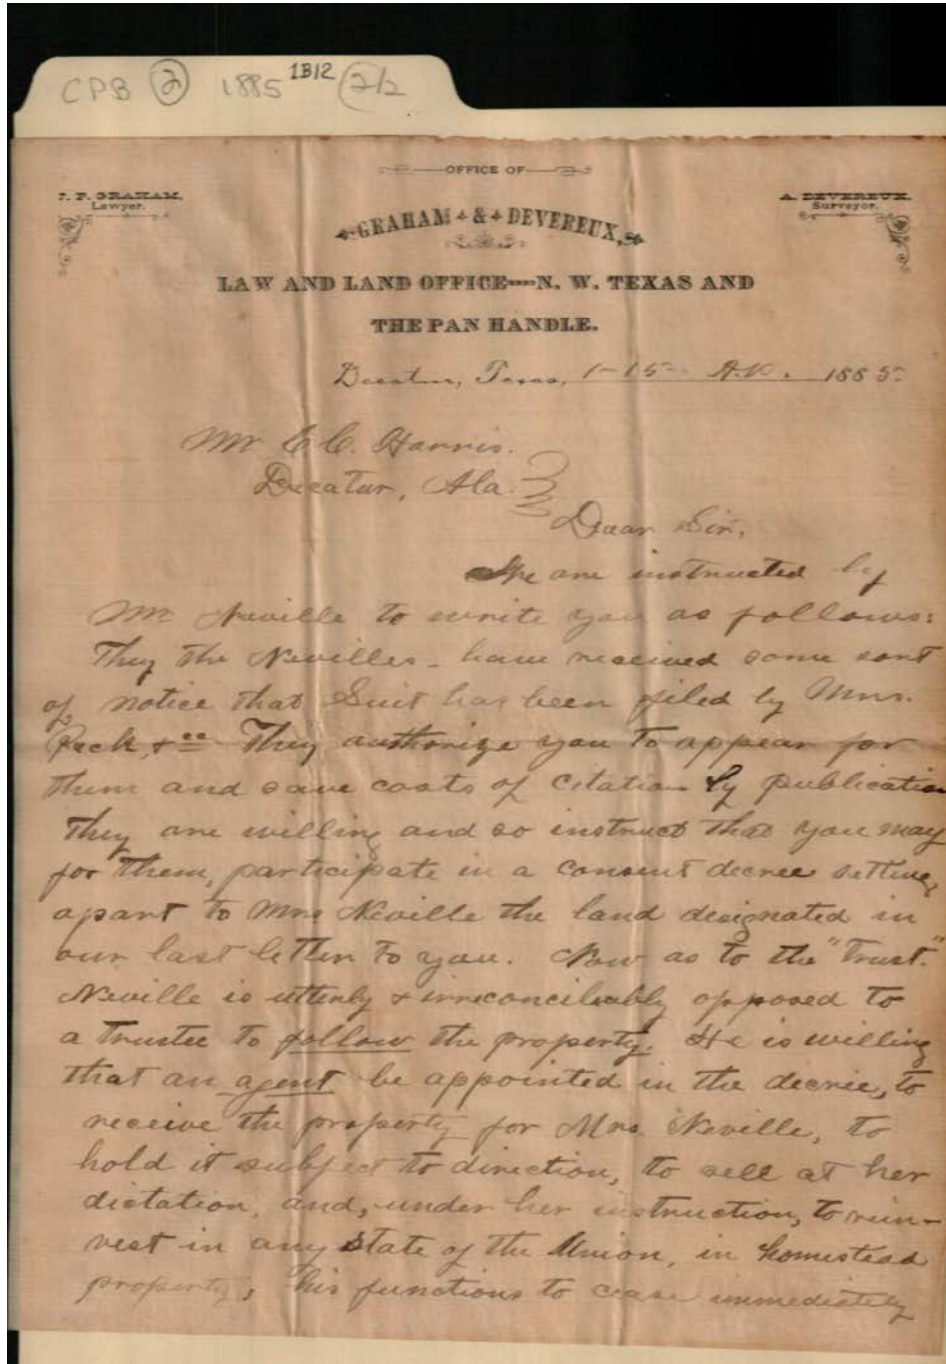 CPB 2 1885 1B12 2/2
OFFICE OF
J. F. GRAHAM,
Lawyer.
A. DEVEREUX,
Surveyor.
GRAHAM & DEVEREUX,
LAW AND LAND OFFICE----N. W. TEXAS AND
THE PAN HANDLE.
Decatur, Texas, 1-15- A.D. 1885
Mr C. C. Harris.
Decatur, Ala.
Dear Sir,
We are instructed by
Mr Neville to write you as follows:
They the Nevilles - have received some sort
of notice that Suit has been filed by Mrs.
Peck, + They authorize you to appear for
them and save costs of citation by publication
They are willing and so instruct that you may
for them, participate in a consent decree setting
apart to Mrs Neville the land designated in
our last letter to you. Now as to the "Trust."
Neville is utterly & irreconcileably opposed to
a trustee to follow the property. He is willing
that an agent be appointed in the decree, to
receive the property for Mrs. Neville, to
hold it subject to direction, to sell at her
dictation, and, under her instruction, to rein-
vest in any state of the Union, in homestead
property, his functions to cease immediately